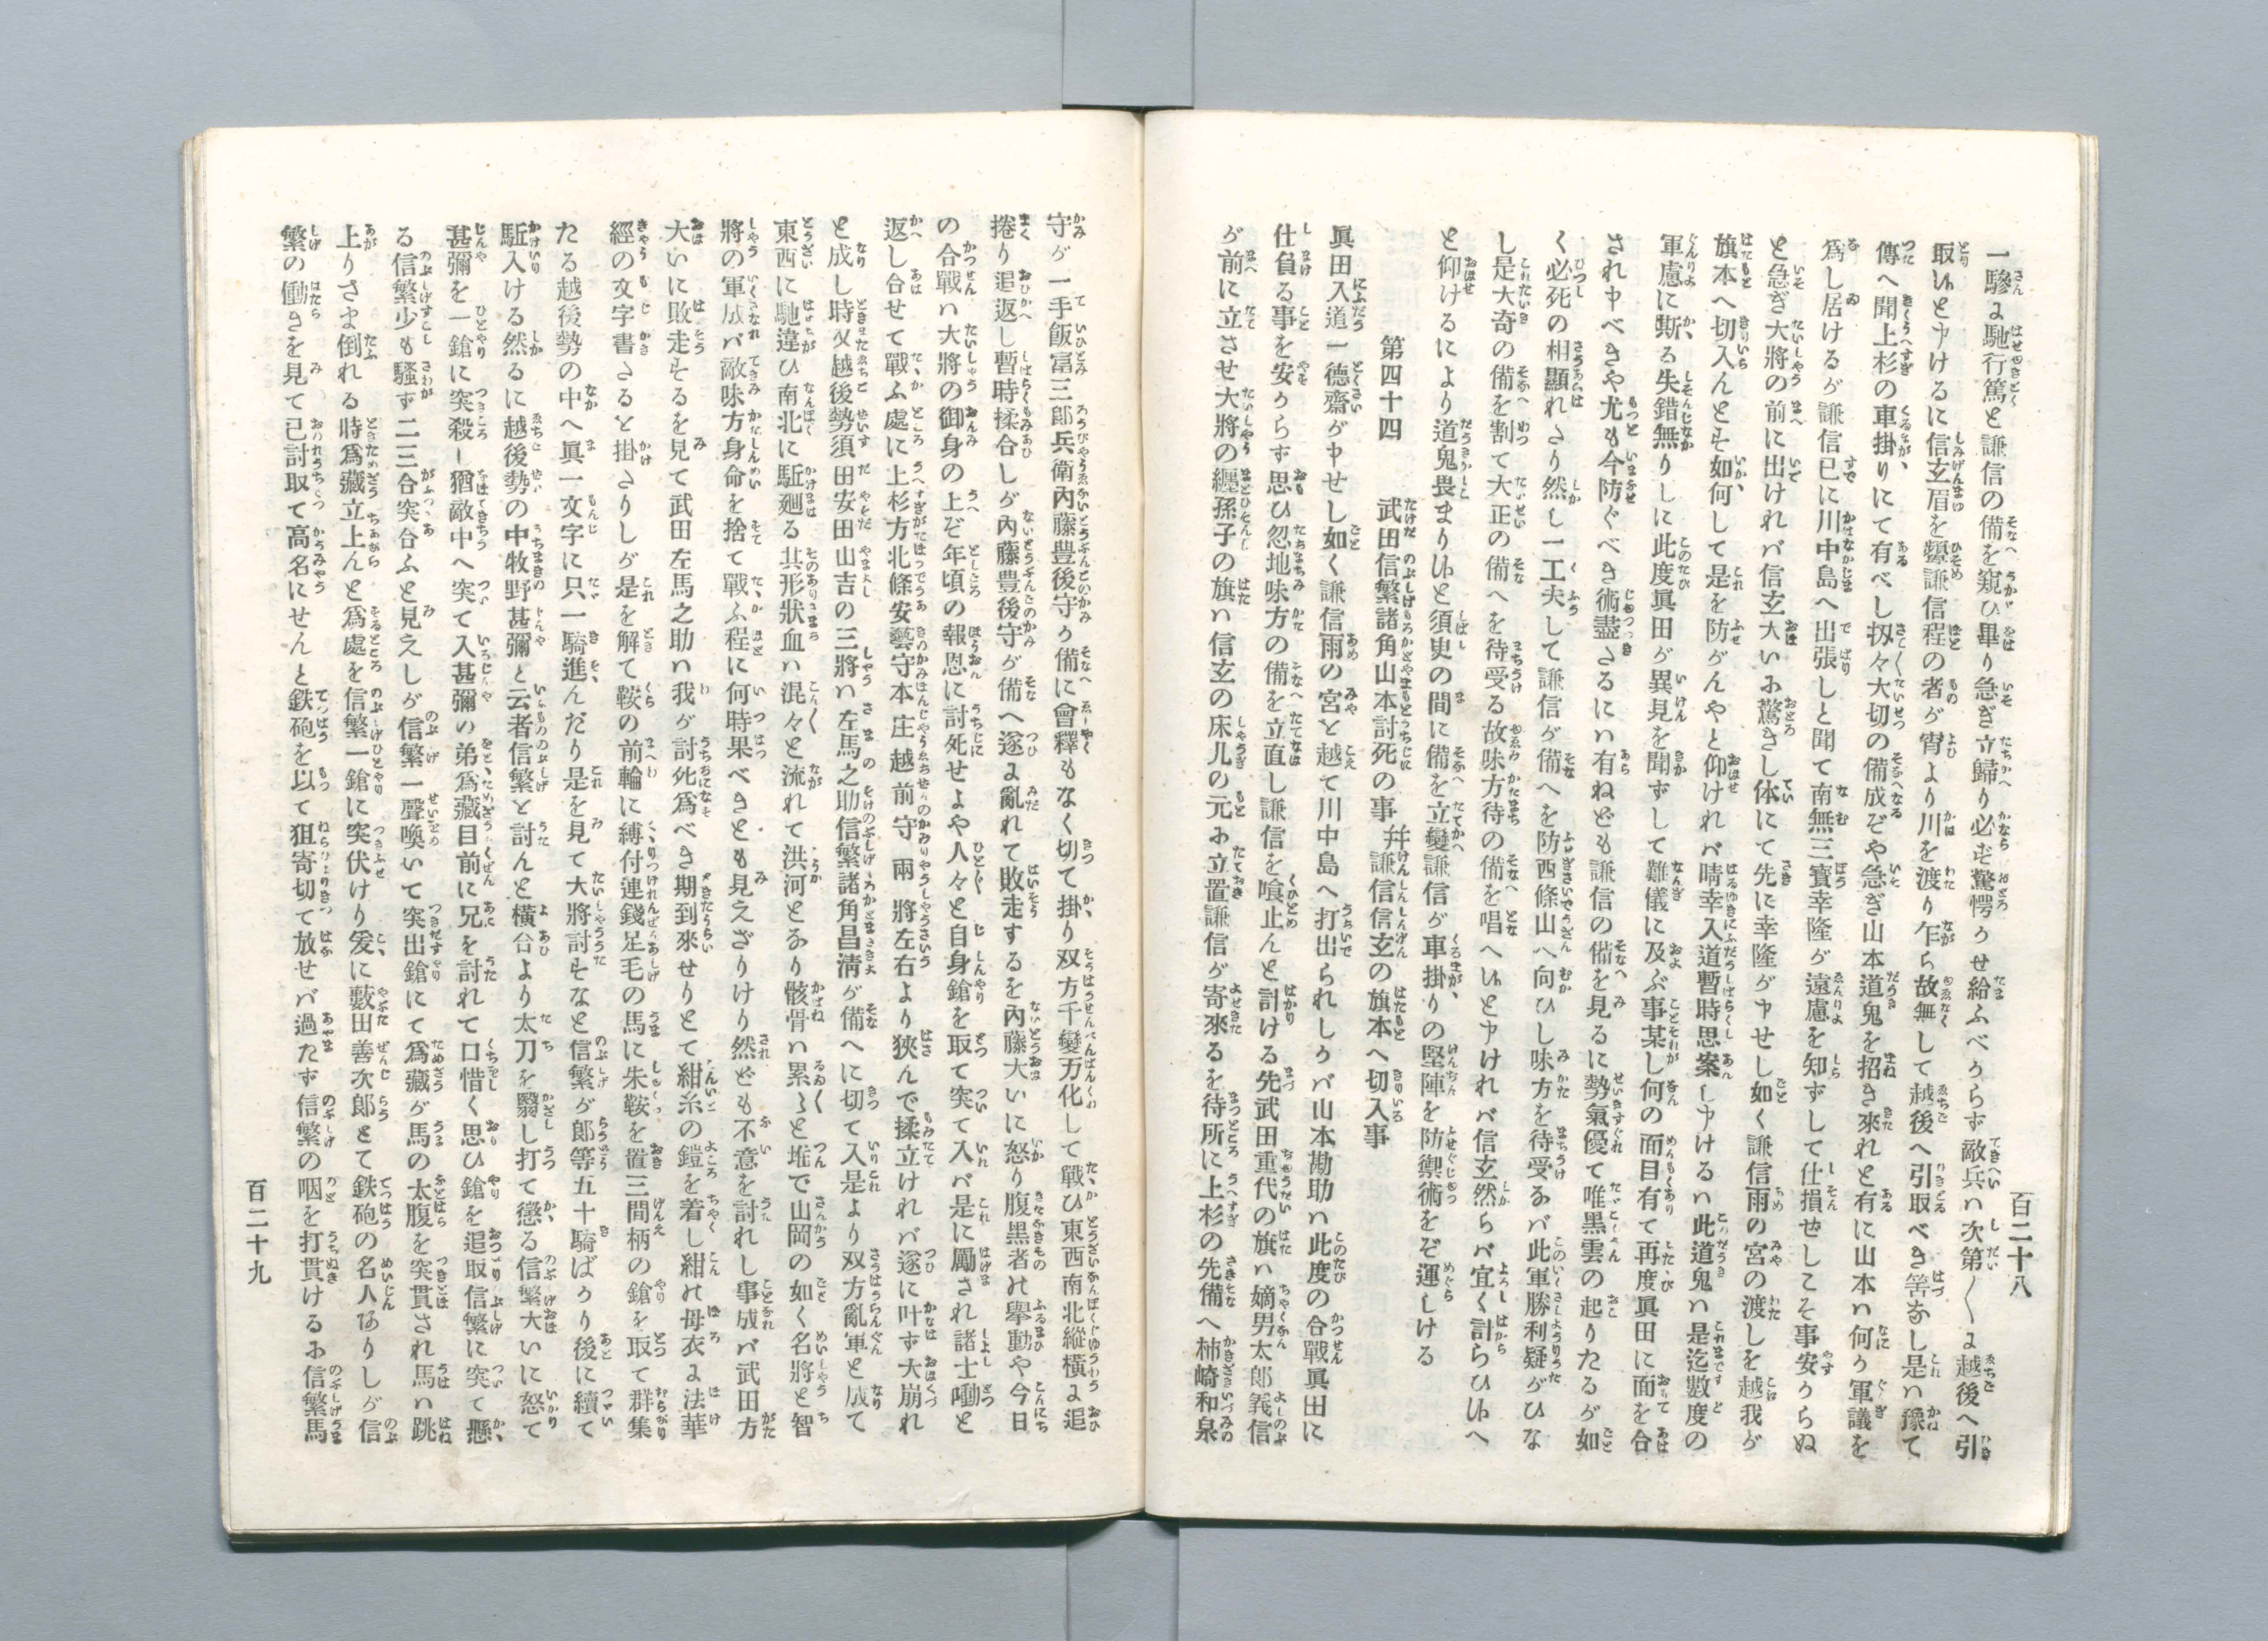 百二十八
一驂に馳行篤と謙信の備を窺ひ畢り急ぎ立歸り必ず驚愕うせ給ふべうらず敵兵ハ次第〱に越後へ引
取りいと申けるに信玄眉を顰謙信程の者が宵より川を渡り乍ら故無して越後へ引取べき筈なし是ハ豫て
傳へ聞上杉の車掛りにて有べし扨々大切の備成ぞや急ぎ山本道鬼を招き來れと有に山本ハ何か軍議を
爲し居けるが謙信已に川中島へ出張しと聞て南無三寶幸隆が遠慮を知らずして仕損せしこそ事安からぬ
と急ぎ大將の前に出けれバ信玄大いに驚きし体にて先に幸隆が申せし如く謙信雨の宮の渡しを越我が
旗本へ切入んとす如何して是を防がんやと仰けれバ晴幸入道暫時思案し申けるハ此道鬼ハ是迄數度の
軍慮に斯る失錯無りしに此度眞田が異見を聞ずして難儀に及ぶ事某し何の面目有て再度眞田に面を合
され申べきや尤も今防ぐべき術盡さるにハ有ねども謙信の備を見るに勢氣優て唯黒雲の起りたるが如
く必死の相顯れさり然し一工夫して謙信が備へを防西條山へ向ひし味方を待受るバ此軍勝利疑がひな
し是大奇の備を割て大正の備へを待受る故味方待の備を唱へいと申けれバ信玄然らバ宜く計らひいへ
と仰けるにより道鬼畏まりいと須臾の間に備を立變謙信が車掛りの堅陣を防禦術をぞ運しける
第四十四　武田信繁諸角山本討死の事　并謙信信玄の旗本へ切入事
眞田入道一德齋が申せし如く謙信雨の宮を越て川中島へ打出られしうバ山本勘助ハ此度の合戰眞田に
仕負る事を安うらず思ひ忽地味方の備を立直し謙信を喰止んと計ける先武田重代の旗ハ嫡男太郎義信
が前に立させ大將の纒孫子の旗ハ信玄の床几の元に立置謙信が寄來るを待所に上杉の先備へ柿崎和泉
守が一手飯富三郎兵衛内藤豊後守が備に會釋もなく切て掛り双方千變万化して戰ひ東西南北縱横に追
捲り追返し暫時揉合しが内藤豊後守が備へ遂に亂れて敗走するを内藤大いに怒り腹黒者の擧動や今日
の合戰ハ大將の御身の上ぞ年頃の報恩に討死せよや人々と自身鎗を取て突て入バ是に勵され諸士嘞と
返し合せて戰ふ處に上杉方北條安藝守本庄越前守兩將左右より狹んで揉立けれバ遂に叶ず大崩れ
と成し時又越後勢須田安田山吉の三將ハ左馬之助信繁諸角昌淸が備へに切て入是より双方亂軍と成て
東西に馳違ひ南北に駈廻る其形狀血ハ混々と流れて洪河となり骸骨ハ累々と堆で山岡の如く名將と智
將の軍成バ敵味方身命を捨て戰ふ程に何時果べきとも見えざりけり然ども不意を討れし事成バ武田方
大いに敗走するを見て武田左馬之助ハ我が討死爲べき期到來せりとて紺糸の鎧を着し紺の母衣に法華
經の文字書さるを掛さりしが是を解て鞍の前輪に縛付連錢足毛の馬に朱鞍を置三間柄の鎗を取て群集
たる越後勢の中へ眞一文字に只一騎進んだり是を見て大將討すなと信繁が郎等五十騎ばうり後に續て
駈入ける然るに越後勢の中牧野甚彌と云者信繁と討んと横合より太刀を翳し打て懸る信繁大いに怒て
甚彌を一鎗に突殺し猶敵中へ突て入甚彌の弟爲藏目前に兄を討れて口惜く思ひ鎗を追取信繁に突て懸
る信繁少も騒ず二三合突合ふと見えしが信繁一聲喚いて突出鎗にて爲藏が馬の太腹を突貫され馬ハ跳
上りさま倒れる時爲藏立上んと爲處を信繁一鎗に突伏けり爰に藪田善次郎とて鉄砲の名人ありしが信
繁の働きを見て已討取て高名にせんと鉄砲を以て狙寄切て放せバ過たず信繁の咽を打貫けるに信繁馬
百二十九